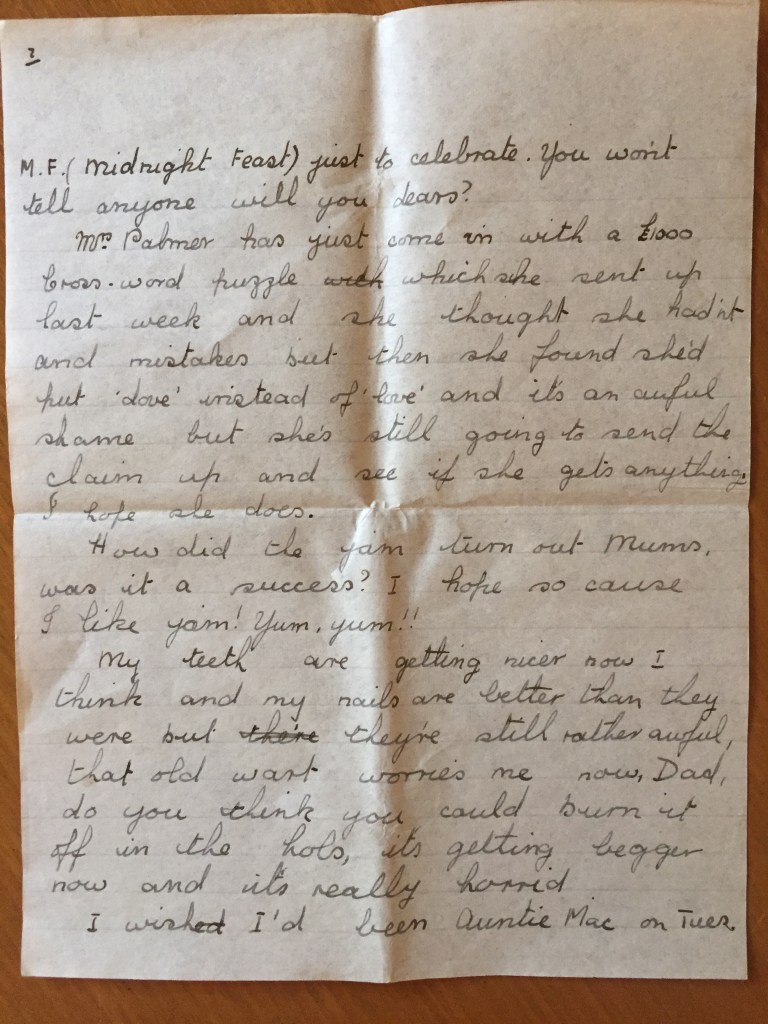 2
M.F. (Midnight Feast) just to celebrate. You won't
tell anyone will you dears?
Mrs Palmer has just come in with a £1000
Cross-word puzzle with which she sent up
last week and she thought she hadn't
and mistakes but then she found she'd
put 'dove' instead of 'love' and it's an auful
shame but she's still going to send the
claim up and see if she gets anything.
I hope she does.
How did the jam turn out Mums,
was it a success? I hope so cause
I like jam! Yum, yum!!
My teeth are getting nicer now I
think and my nails are better than they
were but the're they're still rather auful,
that old wart worries me now, Dad,
do you think you could burn it
off in the hols, it's getting begger
now and it's really horrid
I wished I'd been Auntie Mac on Tues.